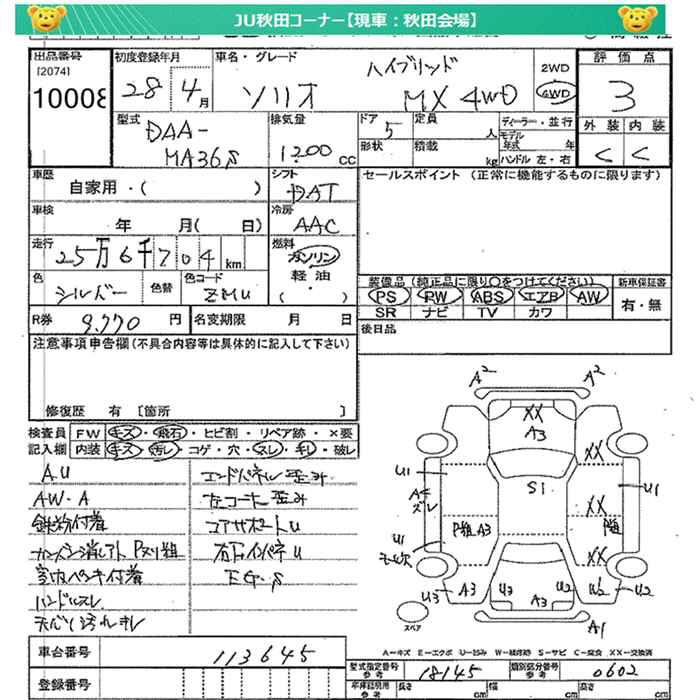 JU秋田コーナー【現車：秋田会場】
出品番号
[2074]
10008
初度登録年月
28年4月
車名・グレード
ソリオ
ハイブリッド
MX 4WD
2WD
4WD
評価点
3
外装 内装
C C
型式
DAA-
MA36S
排気量
1200 CC
ドア
5
定員 人
形状
積載 kg
ディーラー・並行
モデル
年式 年
ハンドル 左・右
車歴
自家用・( )
シフト
DAT
セールスポイント (正常に機能するものに限ります)
車検
年 月( 日)
冷房
AAC
走行
25万6千704 km
燃料
ガソリン
軽・油
( )
色
シルバー
色替
色コード
ZMU
装備品(純正品に限り○をつけてください)
新車保証書
PS PW ABS エアB AW
SR ナビ TV カワ
有・無
R券
9,770 円
名変期限 月 日
後日品
注意事項申告欄(不具合内容等は具体的に記入して下さい)
修復歴 有 [箇所 ]
検査員
記入欄
FW キズ・飛石・ヒビ割・リペア跡・×要
内装 キズ・汚レ・コゲ・穴・スレ・キレ・破レ
A.U
AW.A
鉄粉付着
室内ペンキ付着
ハンドルスレ
エンドパネル歪み
左コーナー歪み
コアサポートU
右FインパネU
EG.S
A2 A2
XX
A3
XX
U1
S1
U1
A4
ズレ
XX
P粗 A3
P粗
U1
XX
U3
A3
U3
U2
W2
U2
A3
A1
スペア
A－キズ E－エクボ U－凹み W－補修跡 S－サビ C－腐食 XX－交換済
車台番号
113645
登録番号
型式指定番号
参考
18145
類別区分番号
参考
0602
車庫証明用
参考
長さ cm
幅 cm
高さ cm